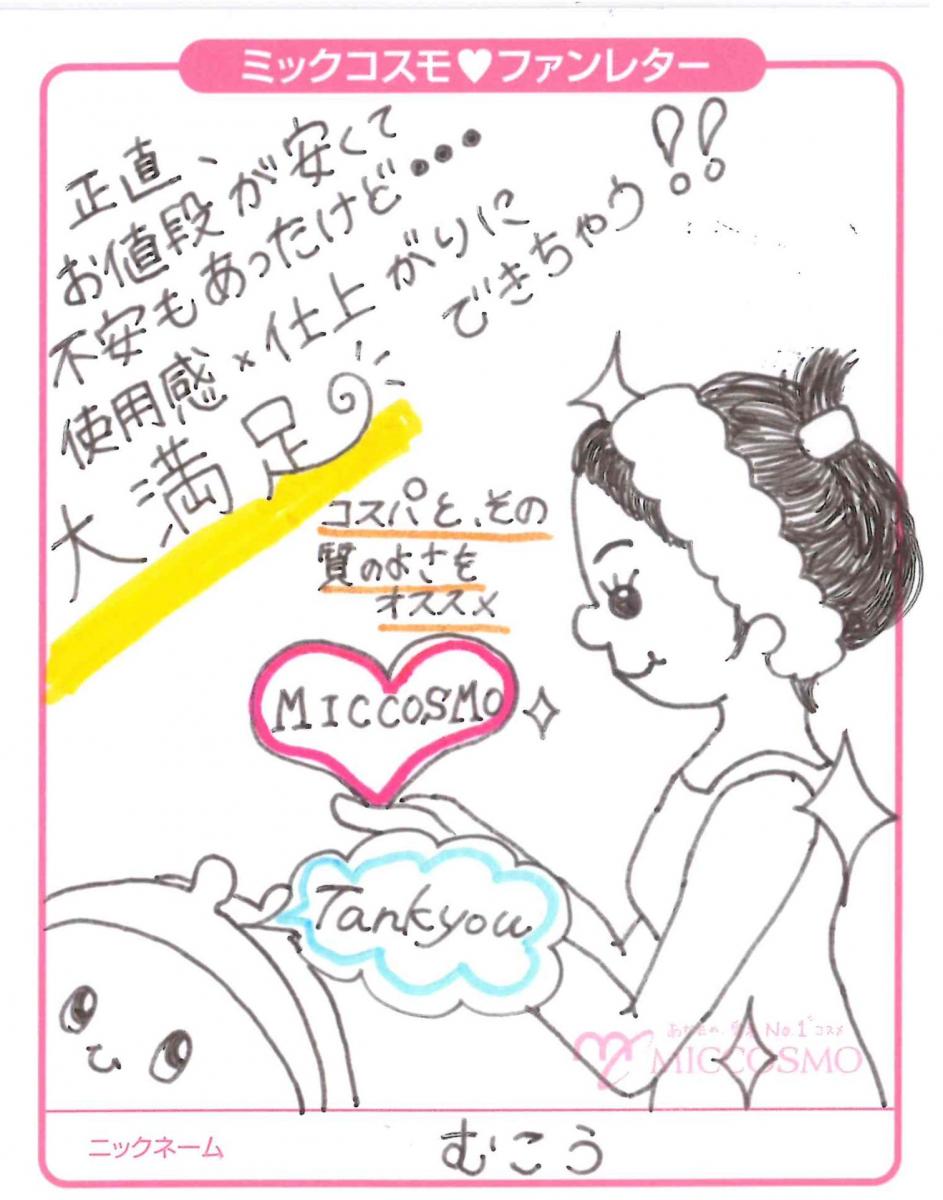 ミックコスモ♥ファンレター
正直、
お値段が安くて
不安もあったけど・・・
使用感×仕上がりに
大満足
できちゃう!!
コスパと、その
質のよさを
オススメ
MICCOSMO
Tankyou
No.1コスメ
MICCOSMO
ニックネーム
むこう